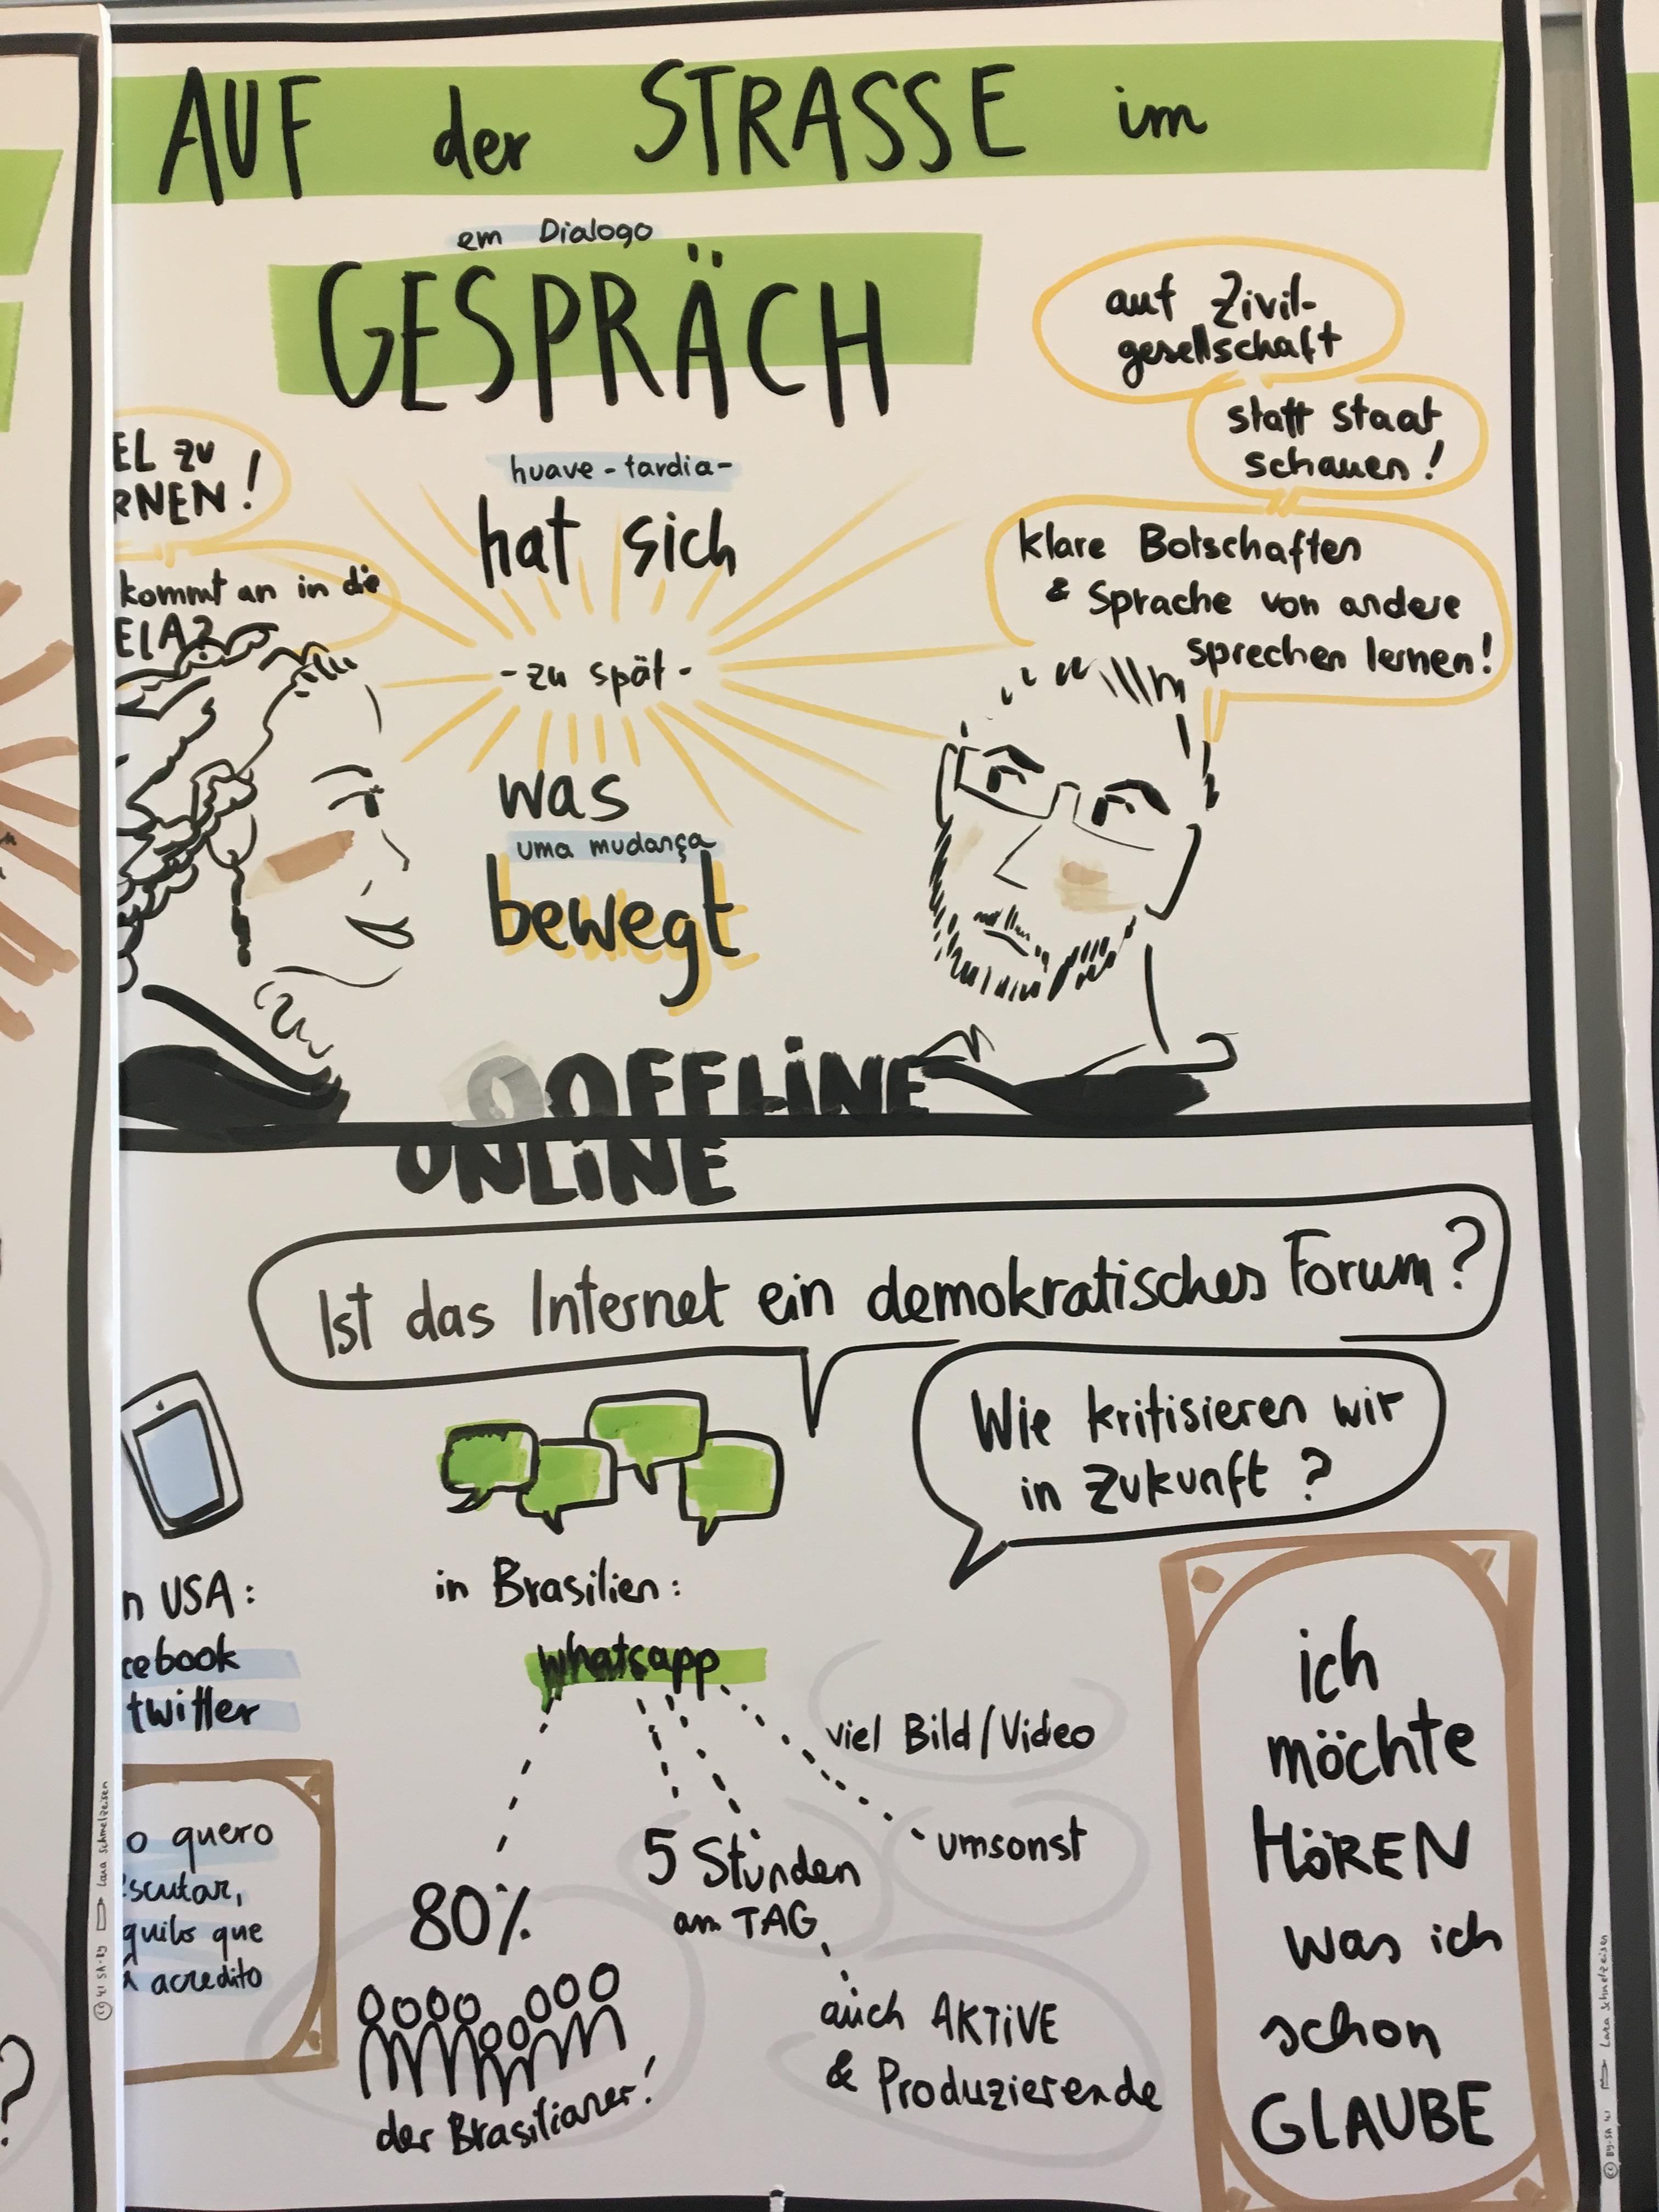 AUF der STRASSE im
em Dialogo
GESPRÄCH
auf Zivil-
gesellschaft
statt staat
schauen!
EL ZU
RNEN!
kommt an in die
huave - tardia -
hat sich
- zu spät -
was
uma mudança
bewegt
klare Botschaften
& Sprache von andere
sprechen lernen!
OOFFLINE
ONLINE
Ist das Internet ein demokratisches Forum?
Wie kritisieren wir
in Zukunft?
n USA:
cebook
twitter
in Brasilien:
Whatsapp
viel Bild/Video
umsonst
5 Stunden
am TAG
80%
der Brasilianer!
auch AKTIVE
& Produzierende
o quero
scutar,
quilo que
á acredito
ich
möchte
HÖREN
was ich
schon
GLAUBE
Lara Schmelzeisen
Lara Schmelzeisen
?